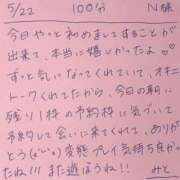 5/22 100分 N様
今日やっと初めましてすることが
出来て、本当に嬉しかったよ♡
ずっと気になってくれていて、オキニ
トークくれてたから、今日の朝に
残り1枠の予約枠に気づいて
予約して会いに来てくれて、ありが
とう(๑'ᴗ'๑) 変態プレイ気持ち良かっ
たね!!! また遊ぼうね!!
みと